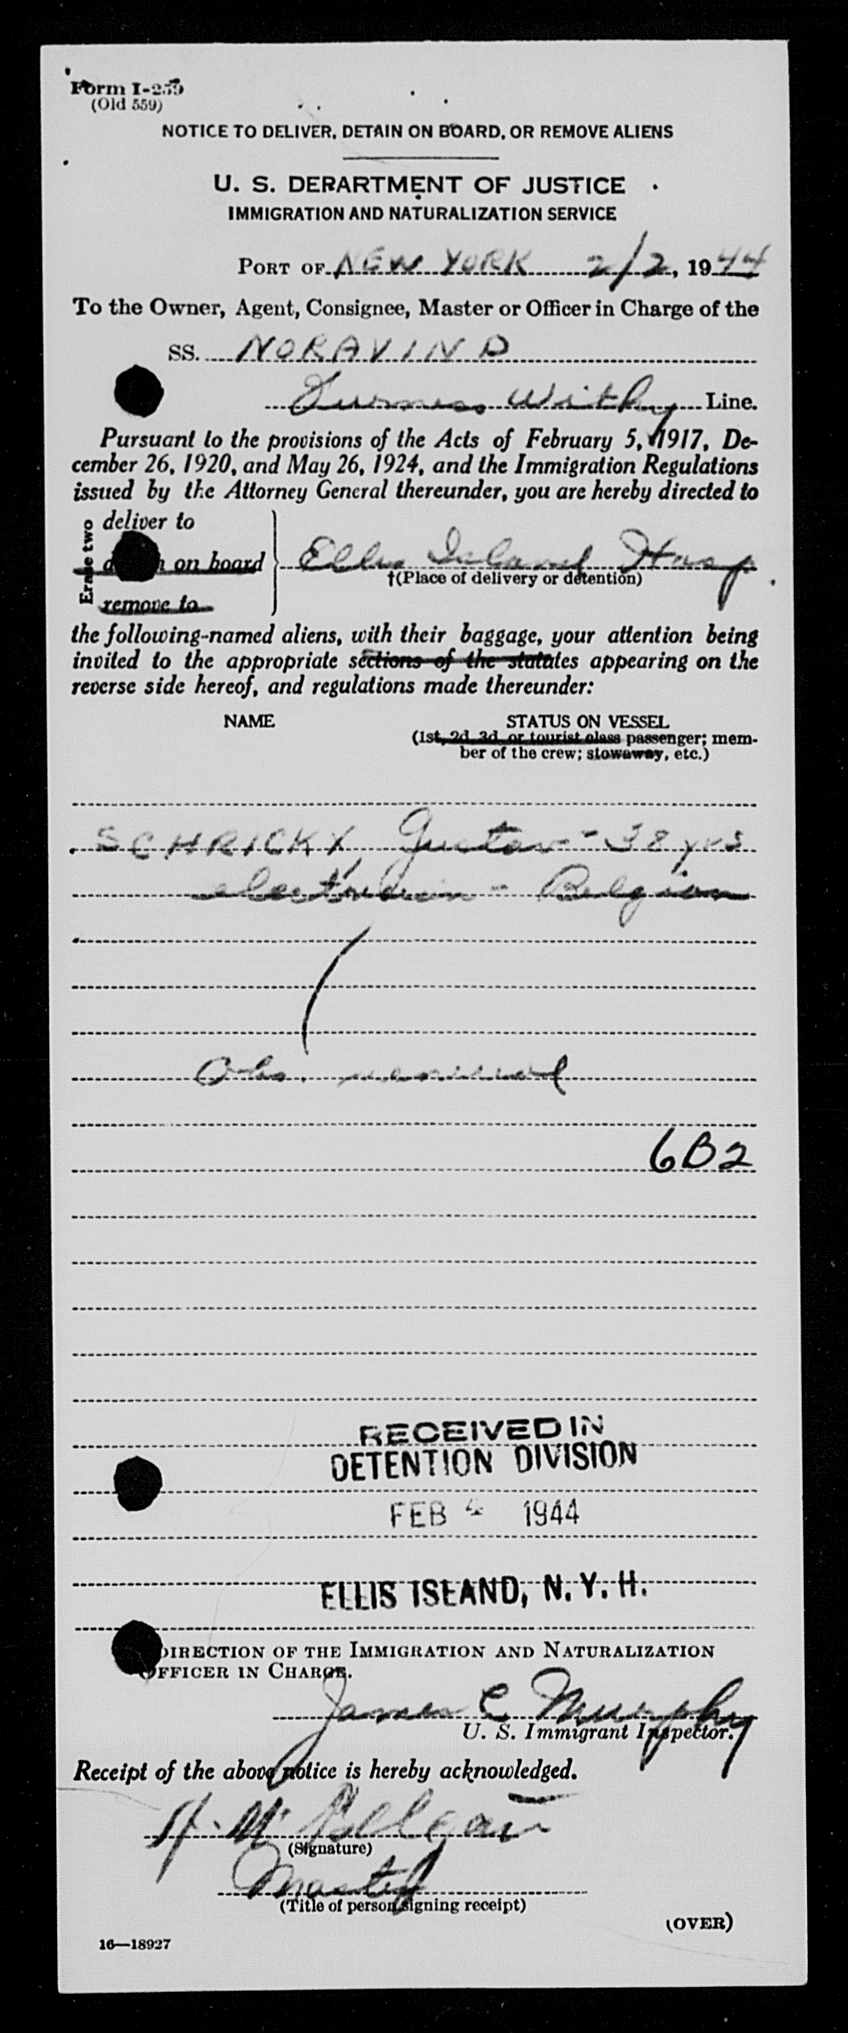 Form I-259
(Old 559)
NOTICE TO DELIVER, DETAIN ON BOARD, OR REMOVE ALIENS
U. S. DEPARTMENT OF JUSTICE
IMMIGRATION AND NATURALIZATION SERVICE
PORT OF NEW YORK 2/2, 1944
To the Owner, Agent, Consignee, Master or Officer in Charge of the
SS. NORAVIND
Furness Withy Line.
Pursuant to the provisions of the Acts of February 5, 1917, De-
cember 26, 1920, and May 26, 1924, and the Immigration Regulations
issued by the Attorney General thereunder, you are hereby directed to
Erase two
deliver to
on board
remove to
Ellis Island Hosp.
†(Place of delivery or detention)
the following-named aliens, with their baggage, your attention being
invited to the appropriate sections of the statutes appearing on the
reverse side hereof, and regulations made thereunder:
NAME STATUS ON VESSEL
(1st, 2d, 3d, or tourist class passenger; mem-
ber of the crew; stowaway, etc.)
SCHRICKX, Gustav - 38 yrs
electrician - Belgian
Obs.
6B2
RECEIVED IN
DETENTION DIVISION
FEB 4 1944
ELLIS ISLAND, N. Y. H.
DIRECTION OF THE IMMIGRATION AND NATURALIZATION
OFFICER IN CHARGE.
James C Murphy
U. S. Immigrant Inspector.
Receipt of the above notice is hereby acknowledged.
(Signature)
Master
(Title of person signing receipt)
(OVER)
16—18927